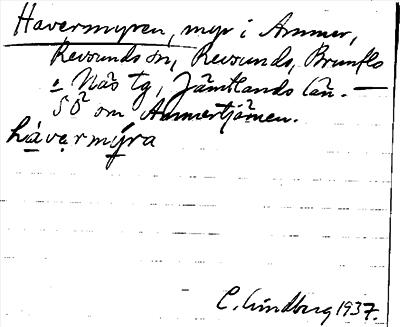 Havermyren, myr i Ammer,
Revsunds sn, Revsunds, Brunflo
o Näs tg, Jämtlands län. —
SÖ om Ammertjärnen.
havermýra
C. Lindberg 1937.